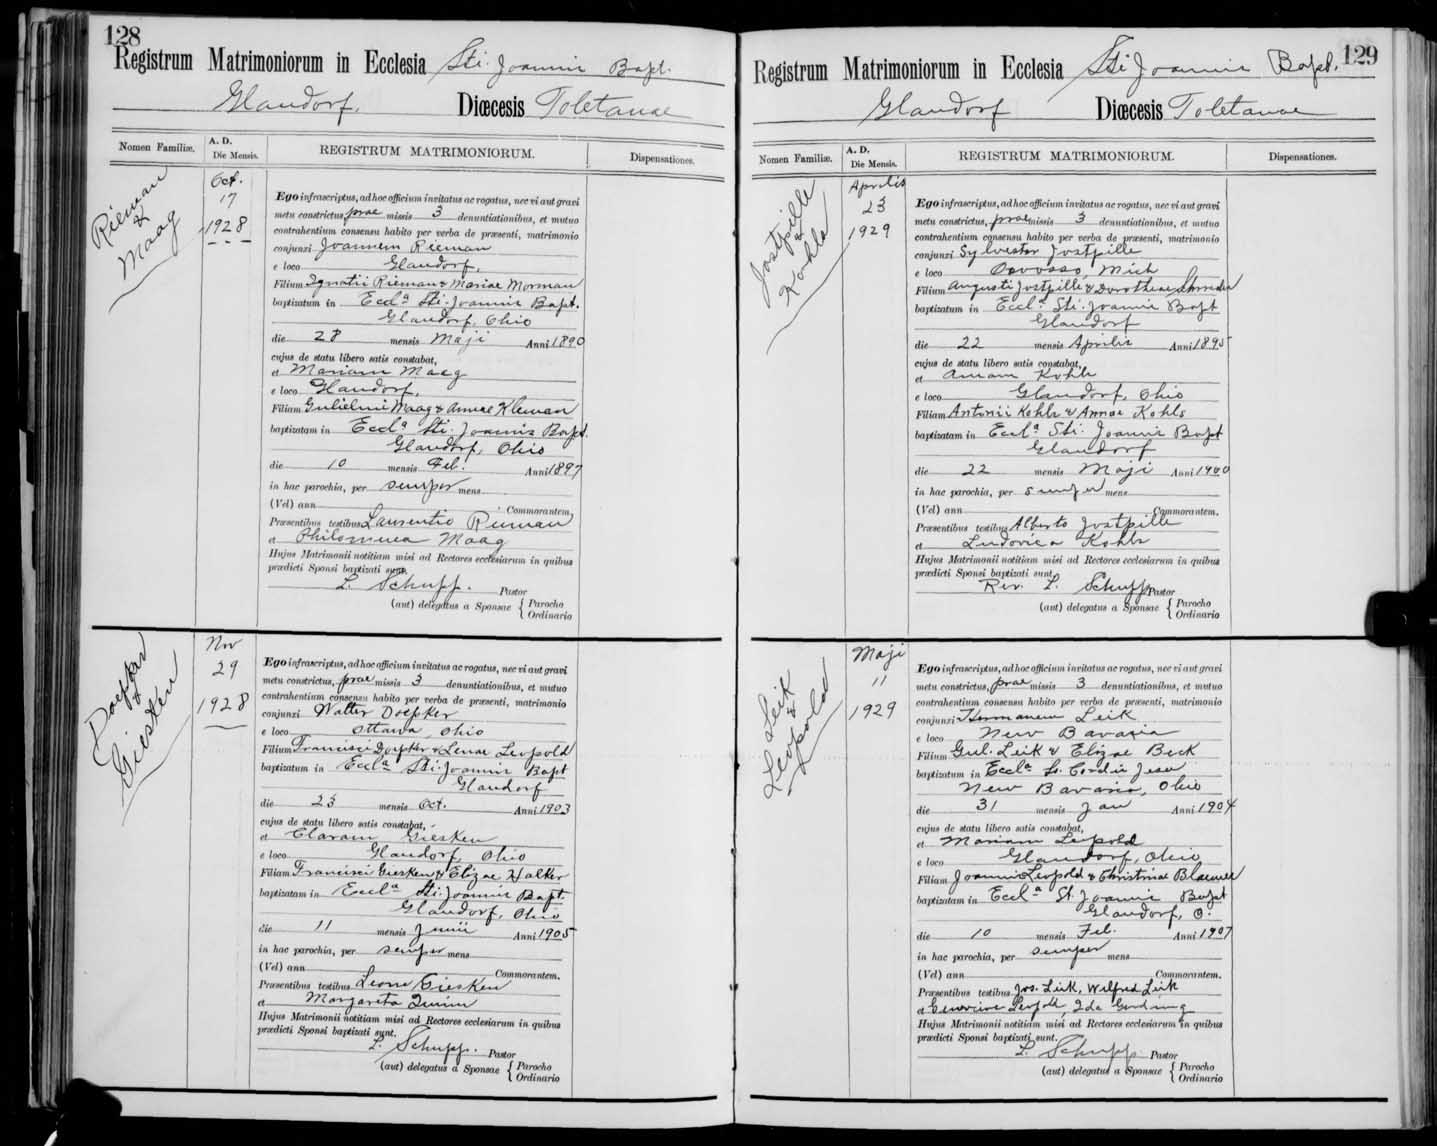 128
Registrum Matrimoniorum in Ecclesia Sti. Joannis Bapt.
Glandorf. Diœcesis Toletanae
Nomen Familiæ. A. D. Die Mensis. REGISTRUM MATRIMONIORUM. Dispensationes.
Rieman & Maag
Oct. 17 1928
Ego infrascriptus, ad hoc officium invitatus ac rogatus, nec vi aut gravi
metu constrictus, prae missis 3 denuntiationibus, et mutuo
contrahentium consensu habito per verba de præsenti, matrimonio
conjunxi Joannem Rieman
e loco Glandorf,
Filium Ignatii Rieman & Mariae Morman
baptizatum in Eccla Sti. Joannis Bapt.
Glandorf, Ohio
die 28 mensis Maji Anni 1890
cujus de statu libero satis constabat,
et Mariam Maag
e loco Glandorf,
Filiam Gulielmi Maag & Annae Kleman
baptizatam in Eccla Sti. Joannis Bapt.
Glandorf, Ohio
die 10 mensis Feb. Anni 1897
in hac parochia, per semper mens
(Vel) ann Commorantem.
Præsentibus testibus Laurentio Rieman
et Philomena Maag
Hujus Matrimonii notitiam misi ad Rectores ecclesiarum in quibus
prædicti Sponsi baptizati sunt.
L. Schupp. Pastor
(aut) delegatus a Sponsae { Parocho
Ordinario
Doepker & Giesken
Nov 29 1928
Ego infrascriptus, ad hoc officium invitatus ac rogatus, nec vi aut gravi
metu constrictus, prae missis 3 denuntiationibus, et mutuo
contrahentium consensu habito per verba de præsenti, matrimonio
conjunxi Walter Doepker
e loco Ottawa, Ohio
Filium Francisci Doepker & Lenae Leopold
baptizatum in Eccla Sti. Joannis Bapt
Glandorf
die 23 mensis Oct. Anni 1903
cujus de statu libero satis constabat,
et Claram Giesken
e loco Glandorf, Ohio
Filiam Francisci Giesken & Elizae Halker
baptizatam in Eccla Sti. Joannis Bapt.
Glandorf, Ohio
die 11 mensis Junii Anni 1905
in hac parochia, per semper mens
(Vel) ann Commorantem.
Præsentibus testibus Leone Giesken
et Margareta
Hujus Matrimonii notitiam misi ad Rectores ecclesiarum in quibus
prædicti Sponsi baptizati sunt.
L. Schupp. Pastor
(aut) delegatus a Sponsae { Parocho
Ordinario
129
Registrum Matrimoniorum in Ecclesia Sti Joannis Bapt.
Glandorf Diœcesis Toletanae
Nomen Familiæ. A. D. Die Mensis. REGISTRUM MATRIMONIORUM. Dispensationes.
Jostpille & Kohls
Aprilis 23 1929
Ego infrascriptus, ad hoc officium invitatus ac rogatus, nec vi aut gravi
metu constrictus, prae missis 3 denuntiationibus, et mutuo
contrahentium consensu habito per verba de præsenti, matrimonio
conjunxi Sylvester Jostpille
e loco Owosso, Mich
Filium Augusti Jostpille & Dorotheae
baptizatum in Eccla Sti. Joannis Bapt
Glandorf
die 22 mensis Aprilis Anni 1895
cujus de statu libero satis constabat,
et Annam Kohls
e loco Glandorf, Ohio
Filiam Antonii Kohls & Annae Kohls
baptizatam in Eccla Sti. Joannis Bapt
Glandorf
die 22 mensis Maji Anni 1900
in hac parochia, per semper mens
(Vel) ann Commorantem.
Præsentibus testibus Alberto Jostpille
et Ludovica Kohls
Hujus Matrimonii notitiam misi ad Rectores ecclesiarum in quibus
prædicti Sponsi baptizati sunt.
Rev. L. Schupp Pastor
(aut) delegatus a Sponsae { Parocho
Ordinario
Leik & Leopold
Maji 11 1929
Ego infrascriptus, ad hoc officium invitatus ac rogatus, nec vi aut gravi
metu constrictus, prae missis 3 denuntiationibus, et mutuo
contrahentium consensu habito per verba de præsenti, matrimonio
conjunxi Hermanum Leik
e loco New Bavaria
Filium Gul. Leik & Elizae Beck
baptizatum in Eccla S. Cordis Jesu
New Bavaria, Ohio
die 31 mensis Jan Anni 1904
cujus de statu libero satis constabat,
et Mariam Leopold
e loco Glandorf, Ohio
Filiam Joannis Leopold & Christinae
baptizatam in Eccla St. Joannis Bapt
Glandorf, O.
die 10 mensis Feb. Anni 1907
in hac parochia, per semper mens
(Vel) ann Commorantem.
Præsentibus testibus Jos. Leik, Wilfred Leik
et Genevieve Leopold, Ida
Hujus Matrimonii notitiam misi ad Rectores ecclesiarum in quibus
prædicti Sponsi baptizati sunt.
L. Schupp Pastor
(aut) delegatus a Sponsae { Parocho
Ordinario